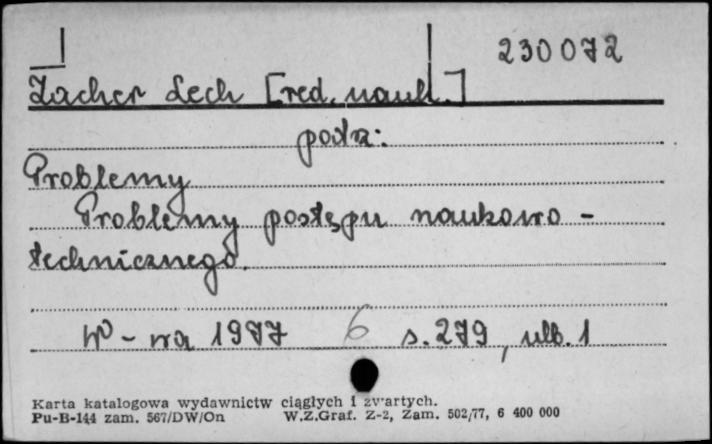 230072
Zacher Lech [red. nauk.]
patrz:
Problemy
Problemy postępu naukowo -
technicznego.
W - wa 1977 6 s. 279, nlb. 1
Karta katalogowa wydawnictw ciągłych i zwartych.
Pu-B-144 zam. 567/DW/On W.Z.Graf. Z-2, Zam. 502/77, 6 400 000